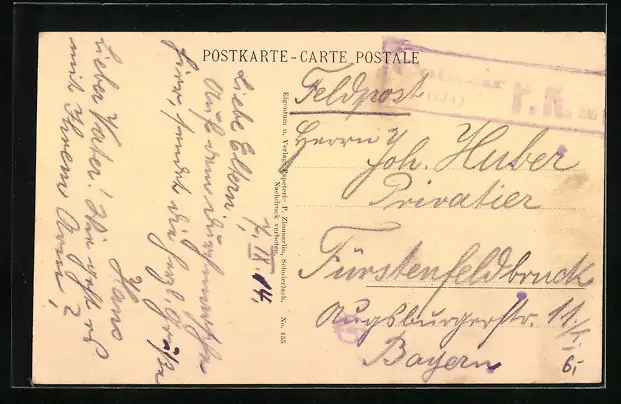 POSTKARTE - CARTE POSTALE
Feldpost
P. K.
Herrn
Joh. Huber
Privatier
Fürstenfeldbruck
Augsburgerstr. 11/I
Bayern
6,-
Eigentum u. Verlag Papeterie P. Zimmerlin, Schnierlach. No. 155
Nachdruck verboten.
7. IX. 14.
Liebe Eltern.
Auf dem
sendet die Grüße
Hans
Lieber Vater! Wie geht es
mit Ihrem Arm?